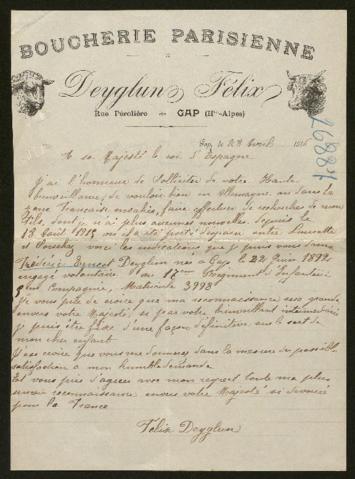 BOUCHERIE PARISIENNE
Deyglun Félix
Rue Pérolière GAP (Htes-Alpes)
Gap le 28 Avril 1916
A sa Majesté le roi d'Espagne
J'ai l'honneur de solliciter de votre Haute
bienveillance, de vouloir bien en Allemagne ou dans la
zone Française envahie, faire effectuer des recherches de mon
fils dont je n'ai plus aucunes nouvelles depuis le
18 1915 ou il a été porté disparu entre
et voici les indications que je puis vous donner
Frédéric Ernest Deyglun né à Gap le 22 Juin 1892
engagé volontaire au 17eme Régiment d'Infanterie
Compagnie, Matricule 3998
Je vous prie de croire que ma reconnaissance sera grande
envers votre Majesté, si par votre bienveillant intermédiaire
je puis être fixé d'une façon définitive sur le sort de
mon cher enfant
J'ose croire que vous me donnerez dans la mesure du possible
satisfaction à mon humble demande
Et vous prie d'agréer avec mon respect toute ma plus
sincère reconnaissance envers votre Majesté si dévouée
pour la France
Félix Deyglun